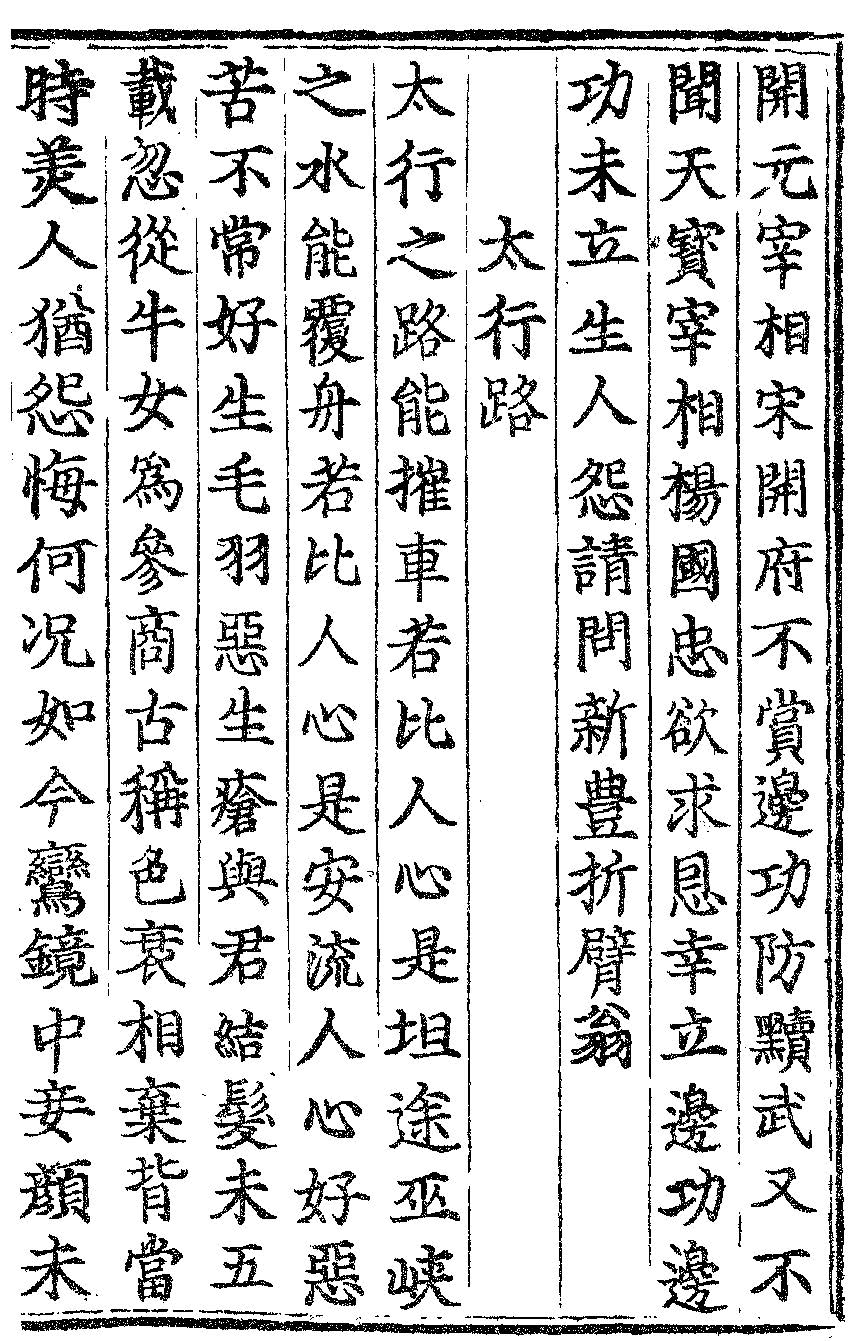 開元宰相宋開府不賞邊功防黷武又不
聞天寳宰相楊國忠欲求恩幸立邊功邊
功未立生人怨請問新豐折臂翁
太行路
太行之路能摧車若比人心是坦途巫峽
之水能覆舟若比人心是安流人心好惡
苦不常好生毛羽惡生瘡與君結髮未五
載忽從牛女爲參商古稱色衰相棄背當
時美人猶怨悔何况如今鸞鏡中妾顔未